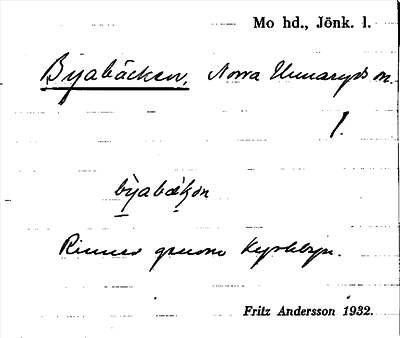 Mo hd., Jönk. l.
Byabäcken, Norra Unnaryds sn.
1.
bỳabækən
Rinner genom Kyrkbyn.
Fritz Andersson 1932.